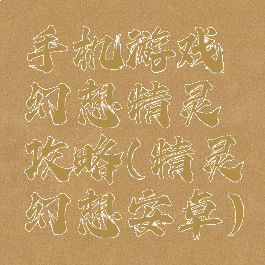 手机游戏
幻想精灵
攻略(精灵
幻想安卓)